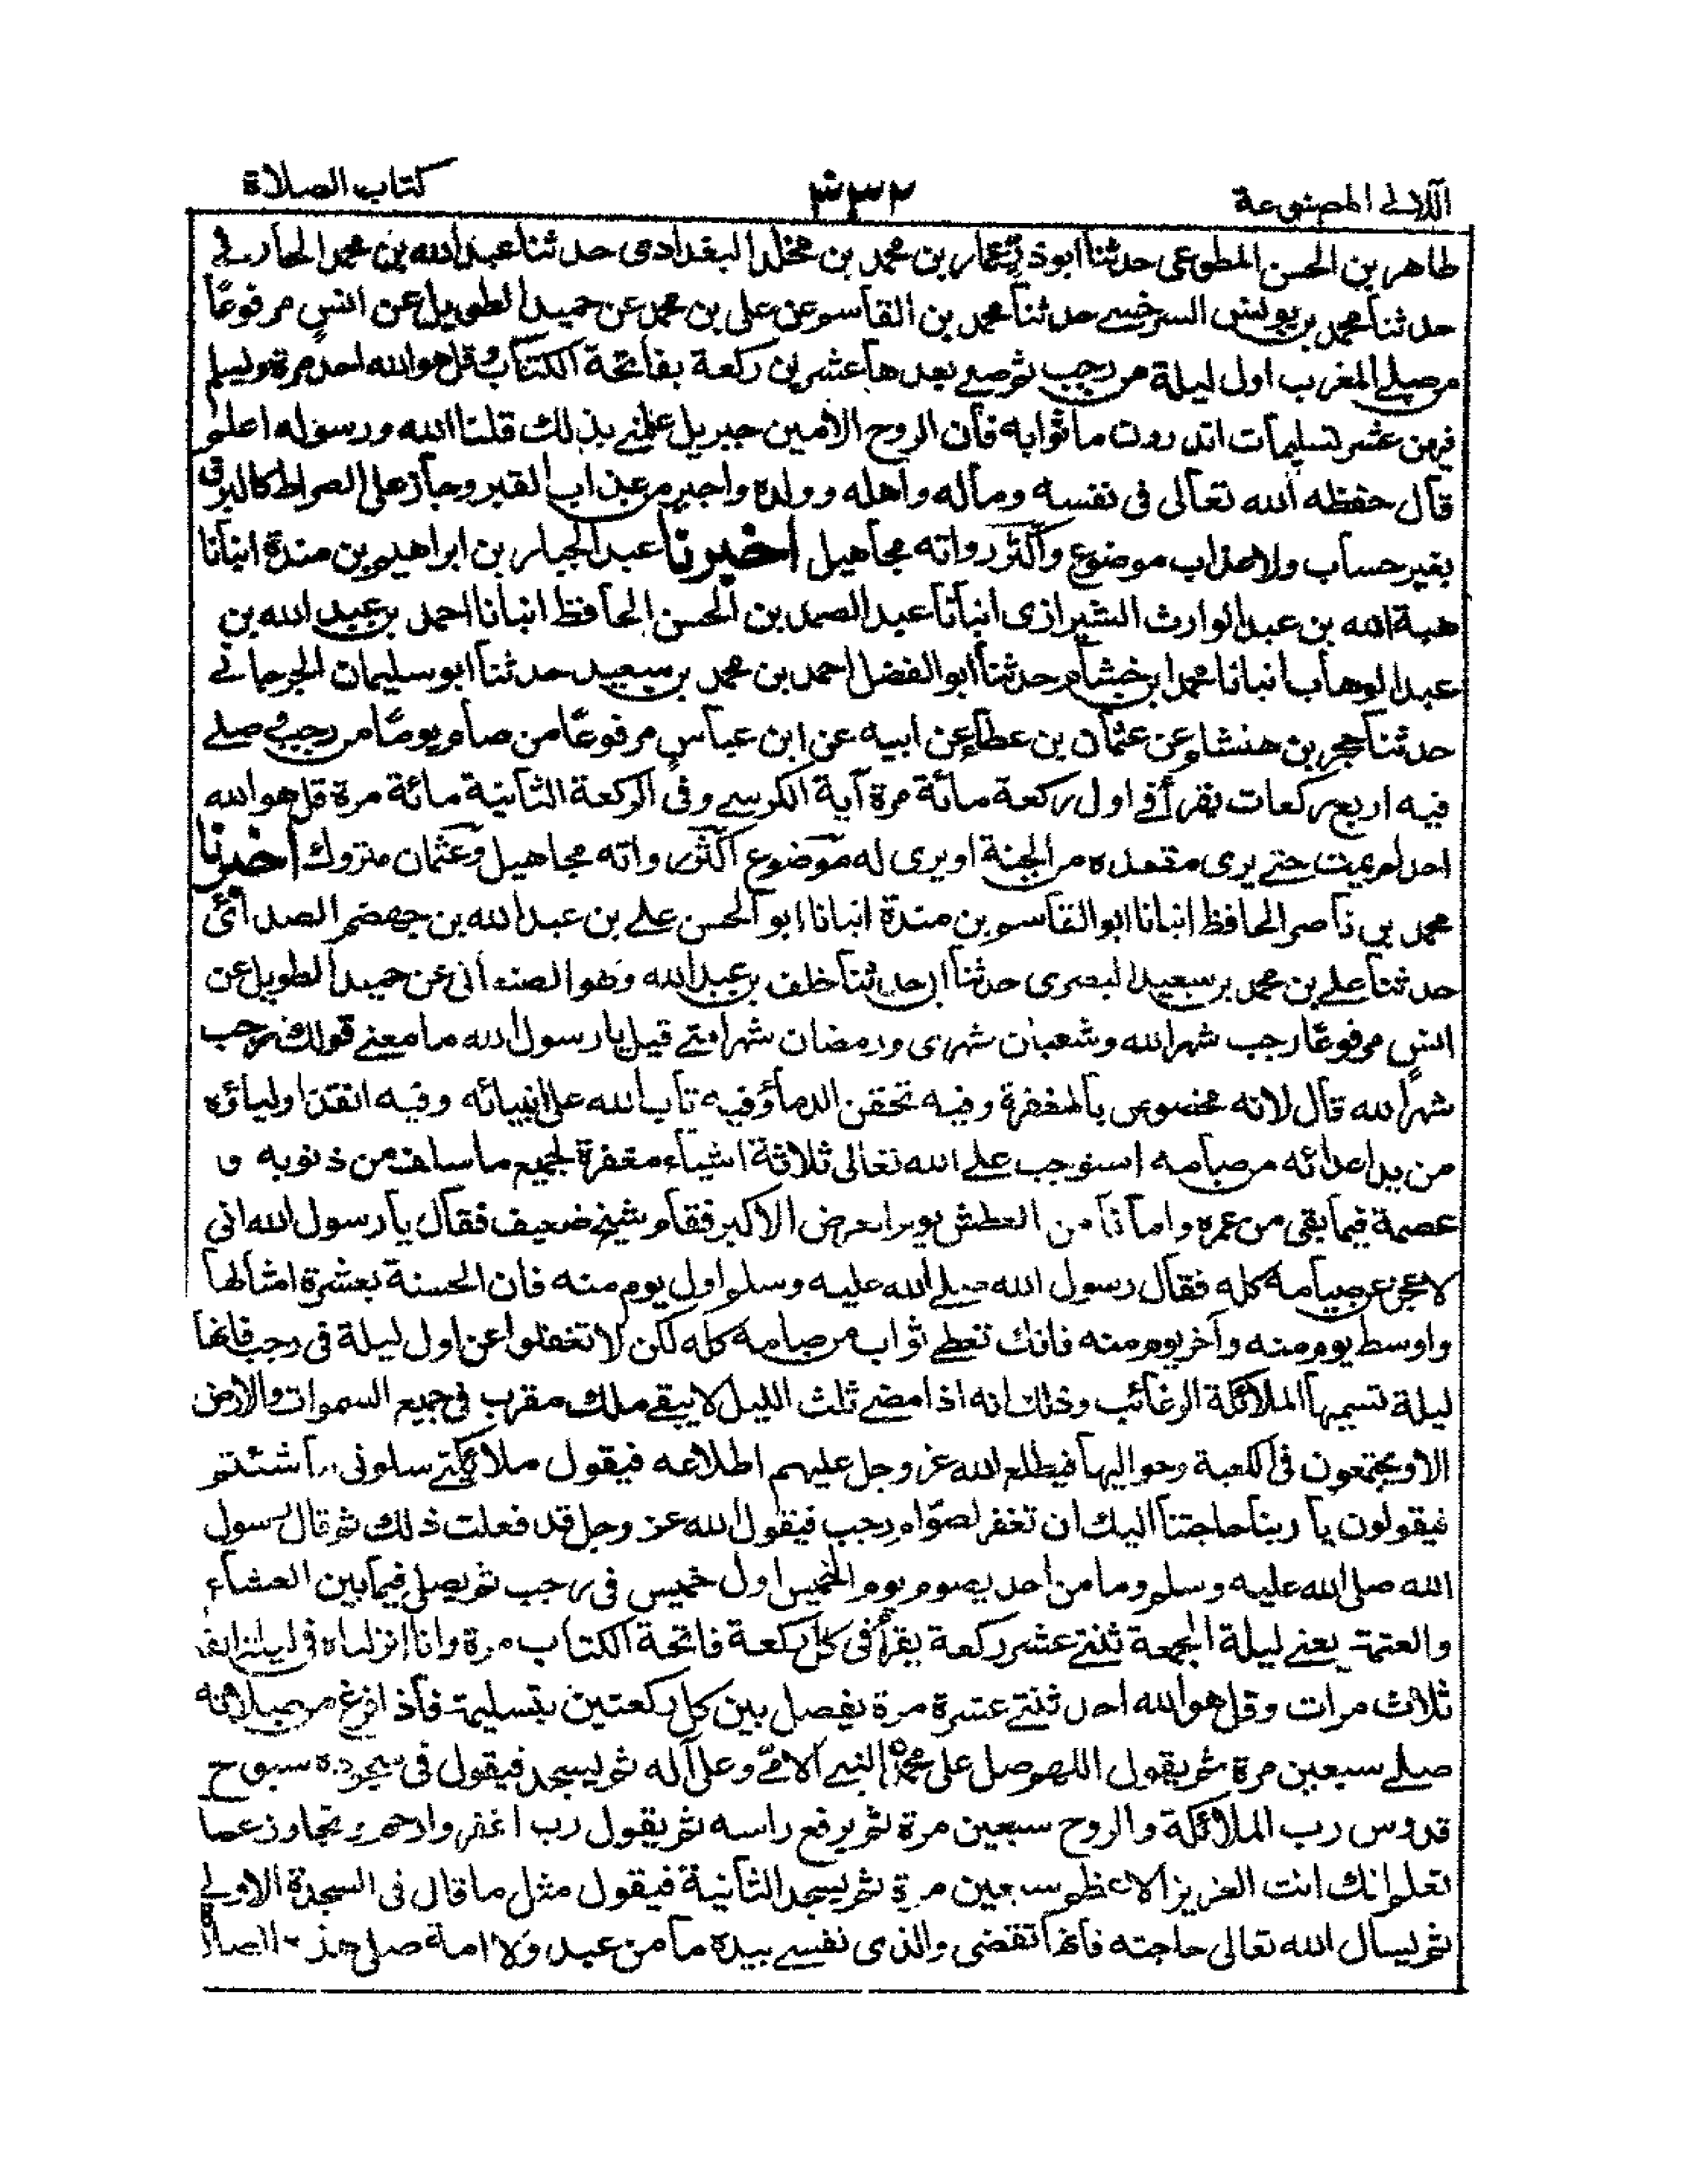 اللآلى المصنوعة
٣٣٢
كتاب الصلاة
طاهر بن الحسن المطوعى حدثنا ابوذر عمار بن محمد بن مخلد البغدادى حدثنا عبد الله بن محمد الحارثى
حدثنا محمد بن يونس السرخسى حدثنا محمد بن القاسم عن على بن محمد عن حميد الطويل عن انس مرفوعًا
من صلى المغرب اول ليلة من رجب ثم صلى بعدها عشرين ركعة بفاتحة الكتاب وقل هو الله احد مرة ويسلم
فيهن عشر تسليمات اتدرون ما ثوابه فان الروح الامين جبريل علمنى بذلك قلنا الله ورسوله اعلم
قال حفظه الله تعالى فى نفسه وماله واهله وولده واجير من عذاب القبر وجاز على الصراط كالبرق
بغير حساب ولا عذاب موضوع واكثر رواته مجاهيل اخبرنا عبد الجبار بن ابراهيم بن مندة انبانا
هبة الله بن عبد الوارث الشيرازى انبانا عبد الصمد بن الحسن الحافظ انبانا احمد بن عبيد الله بن
عبد الوهاب انبانا محمد بن خشام حدثنا ابو الفضل احمد بن محمد بن سعيد حدثنا ابو سليمان الجرجانى
حدثنا حجر بن هنشام عن عثمان بن عطاء عن ابيه عن ابن عباس مرفوعًا من صام يومًا من رجب وصلى
فيه اربع ركعات يقرأ فى اول ركعة مائة مرة آية الكرسى وفى الركعة الثانية مائة مرة قل هو الله
احد لم يمت حتى يرى مقعده من الجنة او يرى له موضوع اكثر رواته مجاهيل وعثمان متروك اخبرنا
محمد بن ناصر الحافظ انبانا ابو القاسم بن مندة انبانا ابو الحسن على بن عبد الله بن جهضم الصدائى
حدثنا على بن محمد بن سعيد البصرى حدثنا ابى حدثنا خلف بن عبد الله وهو الصنعانى عن حميد الطويل عن
انس مرفوعًا رجب شهر الله وشعبان شهرى ورمضان شهر امتى قيل يا رسول الله ما معنى قولك رجب
شهر الله قال لانه مخصوص بالمغفرة وفيه تحقن الدماء وفيه تاب الله على انبيائه وفيه انقذ اولياؤه
من يد اعدائه من صامه استوجب على الله تعالى ثلاثة اشياء مغفرة لجميع ما سلف من ذنوبه و
عصمة فيما بقى من عمره وامانا من العطش يوم العرض الاكبر فقام شيخ ضعيف فقال يا رسول الله انى
لاعجز عن صيامه كله فقال رسول الله صلى الله عليه وسلم اول يوم منه فان الحسنة بعشرة امثالها
واوسط يوم منه وآخر يوم منه فانك تعطى ثواب من صامه كله لكن لا تغفلوا عن اول ليلة فى رجب فانها
ليلة تسميها الملائكة الرغائب وذلك انه اذا مضى ثلث الليل لا يبقى ملك مقرب فى جميع السموات والارض
الا ويجتمعون فى الكعبة وحواليها فيطلع الله عز وجل عليهم اطلاعه فيقول ملائكتى سلونى ما شئتم
فيقولون يا ربنا حاجتنا اليك ان تغفر لصوّام رجب فيقول الله عز وجل قد فعلت ذلك ثم قال رسول
الله صلى الله عليه وسلم وما من احد يصوم يوم الخميس اول خميس فى رجب ثم يصلى فيما بين العشاء
والعتمة يعنى ليلة الجمعة ثنتى عشر ركعة يقرأ فى كل ركعة فاتحة الكتاب مرة وانا انزلناه فى ليلة القدر
ثلاث مرات وقل هو الله احد ثنتى عشرة مرة يفصل بين كل ركعتين بتسليمة فاذا فرغ من صلاته
صلى سبعين مرة ثم يقول اللهم صل على محمد النبى الامى وعلى آله ثم يسجد فيقول فى سجوده سبوح
قدوس رب الملائكة والروح سبعين مرة ثم يرفع راسه ثم يقول رب اغفر وارحم وتجاوز عما
تعلم انك انت العزيز الاعظم سبعين مرة ثم يسجد الثانية فيقول مثل ما قال فى السجدة الاولى
ثم يسال الله تعالى حاجته فانها تقضى والذى نفسى بيده ما من عبد ولا امة صلى هذه الصلاة